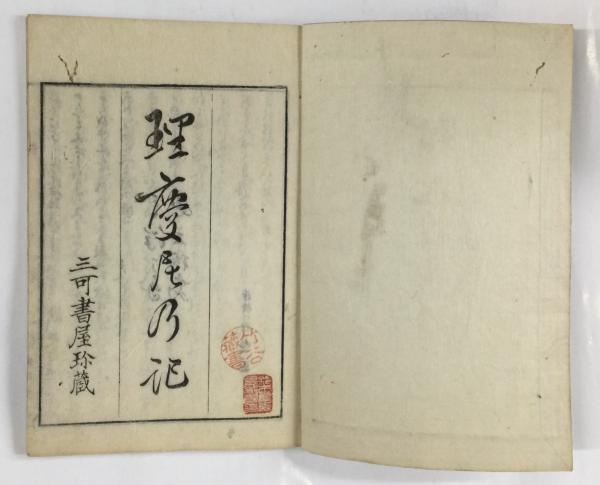 理慶尼乃記
三可書屋珍蔵